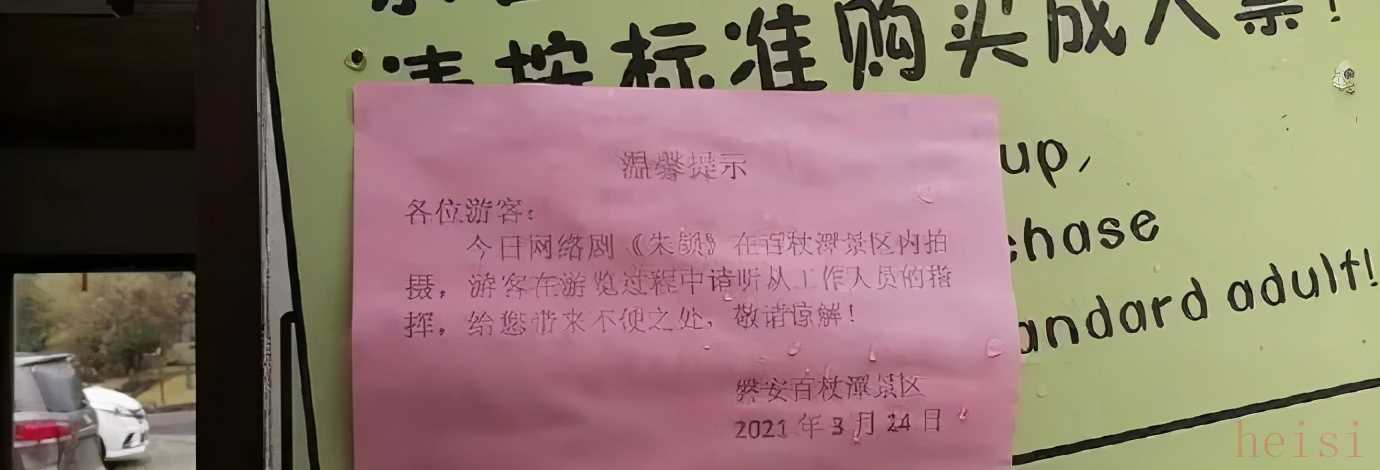 请按标准购买成人票!
up,
chase
andard adult!
温馨提示
各位游客:
今日网络剧《朱颜》在百杖潭景区内拍
摄,游客在游览过程中请听从工作人员的指
挥。给您带来不便之处,敬请谅解!
磐安百杖潭景区
2021年3月24日
heisi